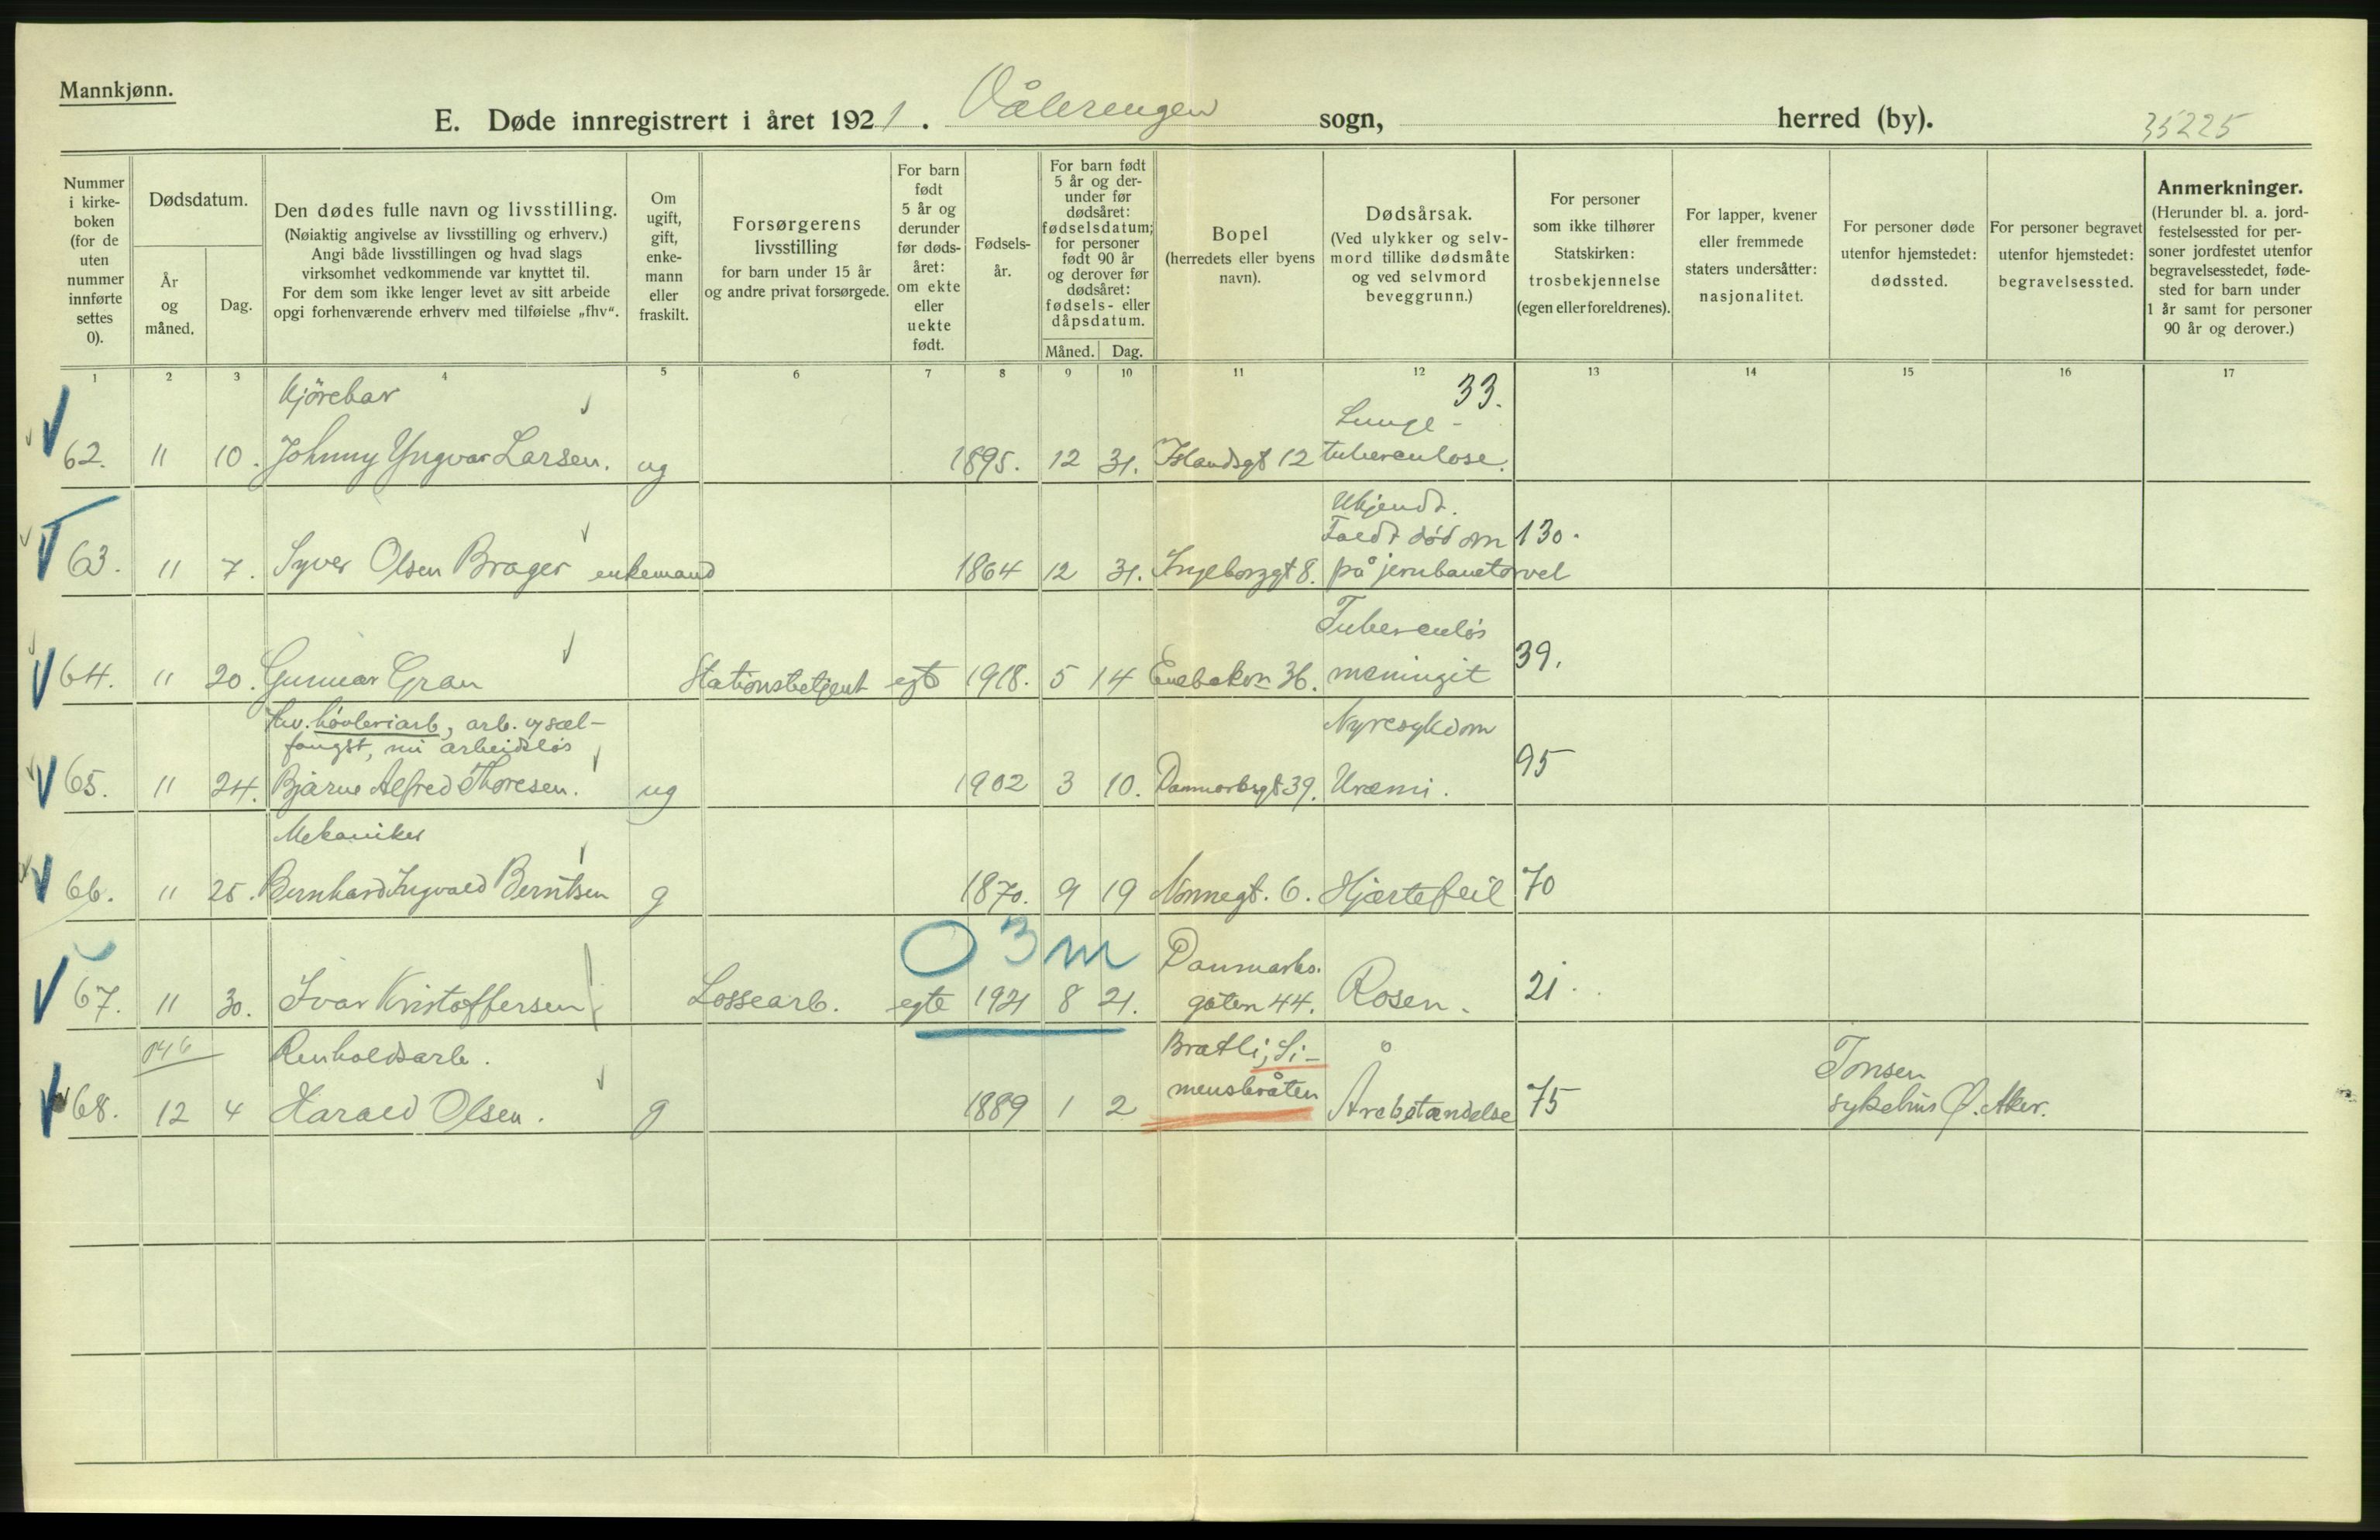 Mannkjønn.
E. Døde innregistrert i året 1921. Vålerengen sogn, herred (by). 35225
Nummer i kirke- boken (for de uten nummer innførte settes 0).
Dødsdatum.
År og måned.
Dag.
Den dødes fulle navn og livsstilling.
(Nøiaktig angivelse av livsstilling og erhverv.)
Angi både livsstillingen og hvad slags
virksomhet vedkommende var knyttet til.
For dem som ikke lenger levet av sitt arbeide
opgi forhenværende erhverv med tilføielse „fhv“.
Om ugift, gift, enke- mann eller fraskilt.
Forsørgerens
livsstilling
for barn under 15 år
og andre privat forsørgede.
For barn født 5 år og derunder før døds- året: om ekte eller uekte født.
Fødsels- år.
For barn født 5 år og der- under før dødsåret: fødselsdatum; for personer født 90 år og derover før dødsåret: fødsels- eller dåpsdatum.
Måned. Dag.
Bopel
(herredets eller byens
navn).
Dødsårsak.
(Ved ulykker og selv-
mord tillike dødsmåte
og ved selvmord
beveggrunn.)
For personer
som ikke tilhører
Statskirken:
trosbekjennelse
(egen eller foreldrenes).
For lapper, kvener
eller fremmede
staters undersåtter:
nasjonalitet.
For personer døde
utenfor hjemstedet:
dødssted.
For personer begravet
utenfor hjemstedet:
begravelsessted.
Anmerkninger.
(Herunder bl. a. jord-
festelsessted for per-
soner jordfestet utenfor
begravelsesstedet, føde-
sted for barn under
1 år samt for personer
90 år og derover.)
1 2 3 4 5 6 7 8 9 10 11 12 13 14 15 16 17
Kjørekar 33.
Lunge-
62. 11 10. Johnny Yngvar Larsen. ug 1895. 12 31. Islandsgt 12 tuberculose.
Ukjendt.
Faldt død om 130.
63. 11 7. Syver Olsen Brager enkemand 1864 12 31. Ingeborggt 8. på jernbanetorvet
Tuberculøs
64. 11 20. Gunnar Gran Stationsbetjent egt 1918. 5 14 Enebakvn 36. meningit 39.
fhv. høvleriarb, arb. og sæl-
fangst, nu arbeidsløs Nyresykdom
65. 11 24. Bjarne Alfred Thoresen. ug 1902 3 10. Danmarksgt 39. Uræmi. 95
Mekaniker
66. 11 25. Bernhard Ingvald Berntsen g 1870. 9 19 Nonnegt. 6. Hjærtefeil 70
0 3 m Danmarks-
67. 11 30. Ivar Kristoffersen Lossearb. egte 1921 8 21. gaten 44. Rosen. 21.
Renholdsarb. Bratli, Si-
68. 12 4 Harald Olsen. g 1889 1 2 mensbråten Årebetændelse 75
Tonsen
sykehus Ø. Aker.